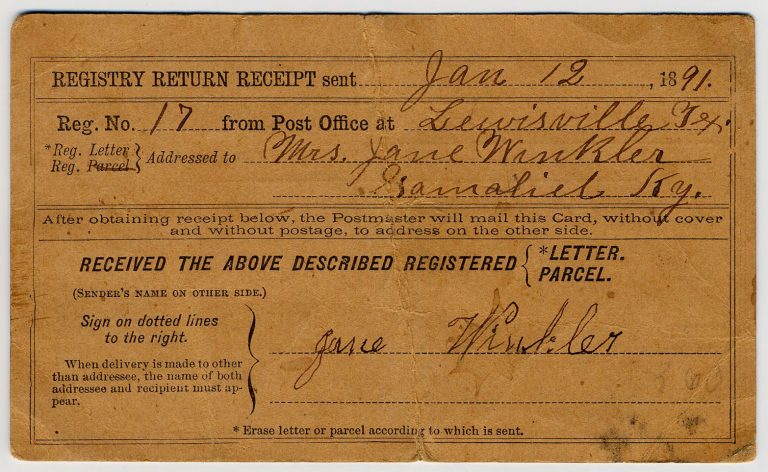 REGISTRY RETURN RECEIPT sent Jan 12, 1891.
Reg. No. 17 from Post Office at Lewisville Tex.
*Reg. Letter
Reg. Parcel } Addressed to Mrs. Jane Winkler
Gamaliel Ky.
After obtaining receipt below, the Postmaster will mail this Card, without cover
and without postage, to address on the other side.
RECEIVED THE ABOVE DESCRIBED REGISTERED { *LETTER.
PARCEL.
(SENDER'S NAME ON OTHER SIDE.)
Sign on dotted lines
to the right.
Jane Winkler
When delivery is made to other
than addressee, the name of both
addressee and recipient must ap-
pear.
* Erase letter or parcel according to which is sent.